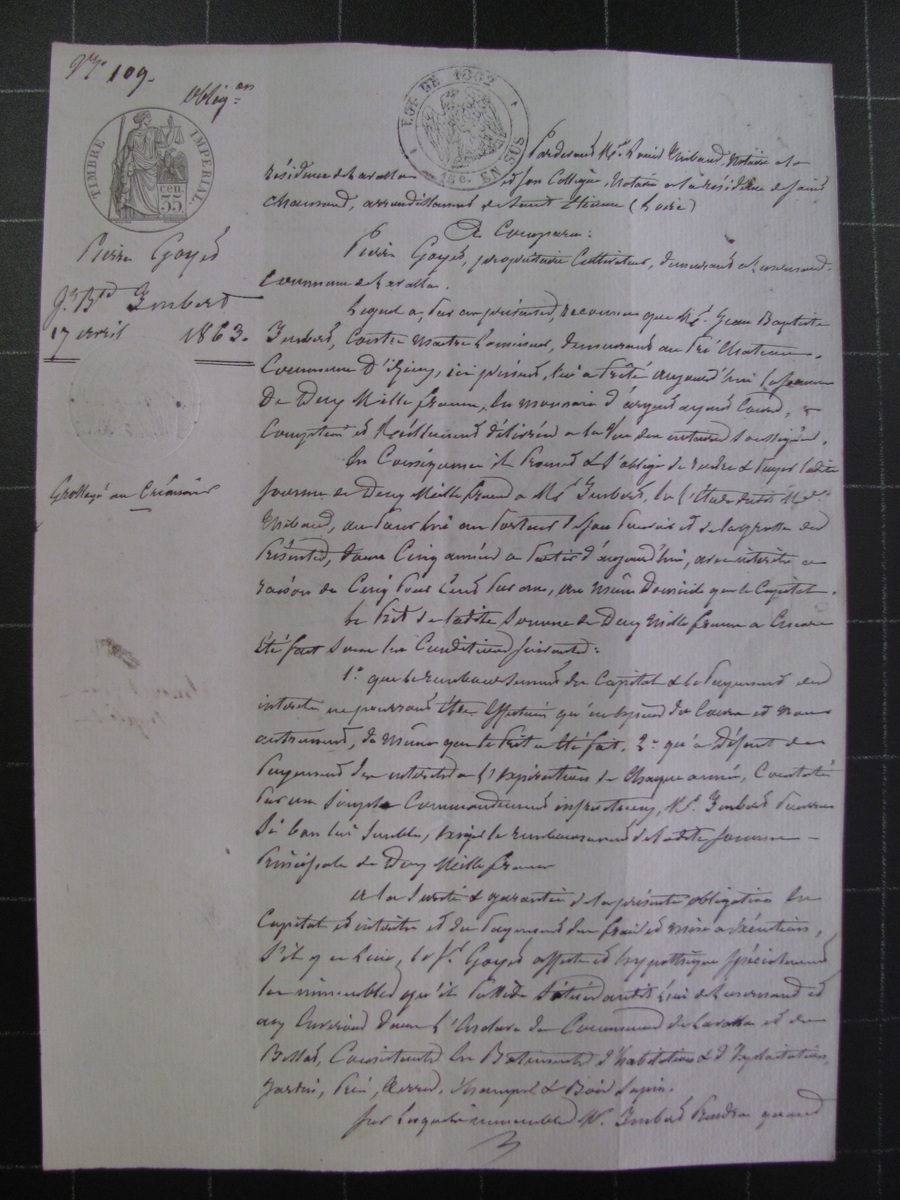 N° 109.
Oblig.on
TIMBRE IMPERIAL
35 cen.
EST DE 1862
15c. EN SUS
Pierre Goyés
Jn Bte Imbert
17 avril 1863.
Grossoyé au Créancier
Pardevant Me Louis Thibaud, Notaire à la
résidence de Lavalla et son Collègue, Notaire à la résidence de Saint
Chamond, arrondissement de Saint Etienne (Loire)
A Comparu:
Pierre Goyés, propriétaire Cultivateur, demeurant à
Commune de Lavalla.
Lequel a, par ces présentes, reconnu que Mr. Jean Baptiste
Imbert, Contre Maître demeurant au
Commune D'Izieux, ici présent, lui a prêté aujourd'hui la somme
De Deux Mille francs, en monnaie d'argent ayant Cours,
Compté et Réellement délivrée à la Vue des notaires soussignés.
En Conséquence il promet & s'oblige de rendre & payer ladite
Somme de Deux Mille francs à Mr Imbert, en l'étude dudit Me
Thibaud, ou pour lui au porteur de son pouvoir et de la grosse des
Présentes, dans Cinq années à partir d'aujourd'hui, avec intérêts à
raison de Cinq pour Cent par an, au même Domicile que le Capital.
Le Prêt de ladite Somme de Deux Mille francs a Encore
Été fait sous les Conditions suivantes:
1° que le remboursement du Capital & le payement des
intérêts ne pourront Être Effectués qu'en Espèces de Cours et non
autrement, de même que le Prêt a Été fait. 2° qu'à Défaut de
Payement des intérêts à l'Expiration de Chaque année, Constaté
Par un Simple Commandement infructueux, Mr. Imbert Pourra
Si bon lui Semble, Exiger le remboursement de ladite Somme
Principale de Deux Mille francs
A la Sureté & garantie de la présente obligation En
Capital et intérêts et du Payement des frais et mise à Exécution,
S'il y a Lieu, le Sr. Goyés affecte et hypothèque Spécialement
les immeubles qu'il Possède Situés audit Lieu de et
aux Environs dans l'Enclave des Communes de Lavalla et de
Consistants En Bâtiments d'habitation & d'Exploitation,
Jardin, Prés, Terres, & Bois Sapin.
Sur lesquels immeubles Mr. Imbert Prendra quand